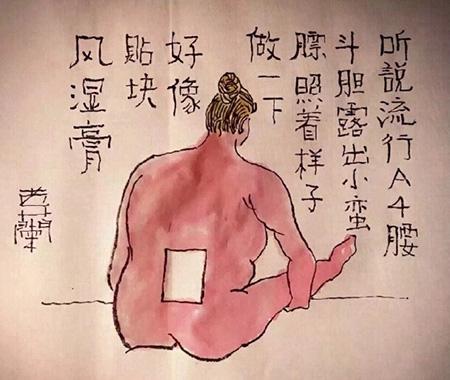 听説流行A4腰
斗胆露出小蛮
膘照着样子
做一下
好像
贴块
风湿膏
蘭